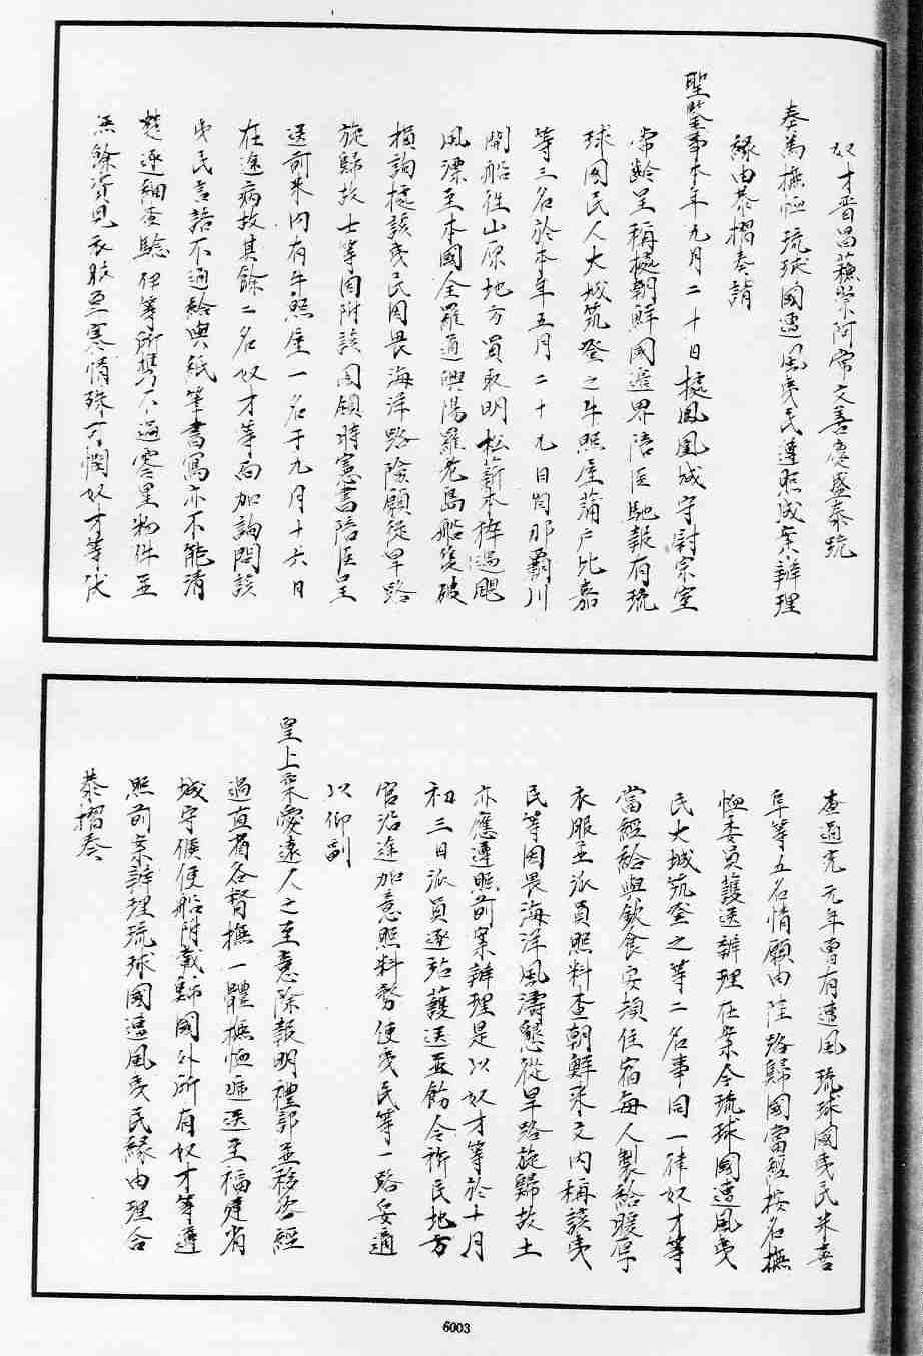 奴才晋昌薩㭗阿常文善慶盛泰跪
奏為撫恤琉球國遭風夷民遵照成案辦理
緣由恭摺奏請
聖鑒事本年九月二十日據鳳凰城守尉宗室
常齡呈稱據朝鮮國邊界陪臣馳報有琉
球國民人大城筑登之牛照屋蒲戶比嘉
等三名於本年五月二十九日自那霸川
開船往山原地方
風漂至本國全羅道興陽羅老島船隻破
損詢據該夷民因畏海洋路險願從旱路
旋歸故土等因附該國領時憲書陪臣呈
送前來內有牛照屋一名于九月十六日
在途病故其餘二名奴才等面加詢問該
夷民言語不通給與紙筆書寫亦不能清
楚逐細查驗伊等所攜不過零星物件並
無餘資見衣服至寒情殊可憫奴才等伏
查道光元年曾有遭風琉球國夷民米喜
阜等五名情願由陸路歸國當經按名撫
恤委員護送辦理在案今琉球國遭風夷
民大城筑登之等二名事同一律奴才等
當經給與飲食安頓住宿每人製給暖厚
衣服並派員照料查朝鮮來文內稱該夷
民等因畏海洋風濤懇從旱路旋歸故土
亦應遵照前案辦理是以奴才等於十月
初三日派員逐站護送並飭令旂民地方
官沿途加意照料務使夷民等一路妥適
以仰副
皇上柔愛遠人之至意除報明禮部並移咨經
過直省各督撫一體撫恤遞送至福建省
城守候便船附載歸國外所有奴才等遵
照前案辦理琉球國遭風夷民緣由理合
恭摺奏
6003